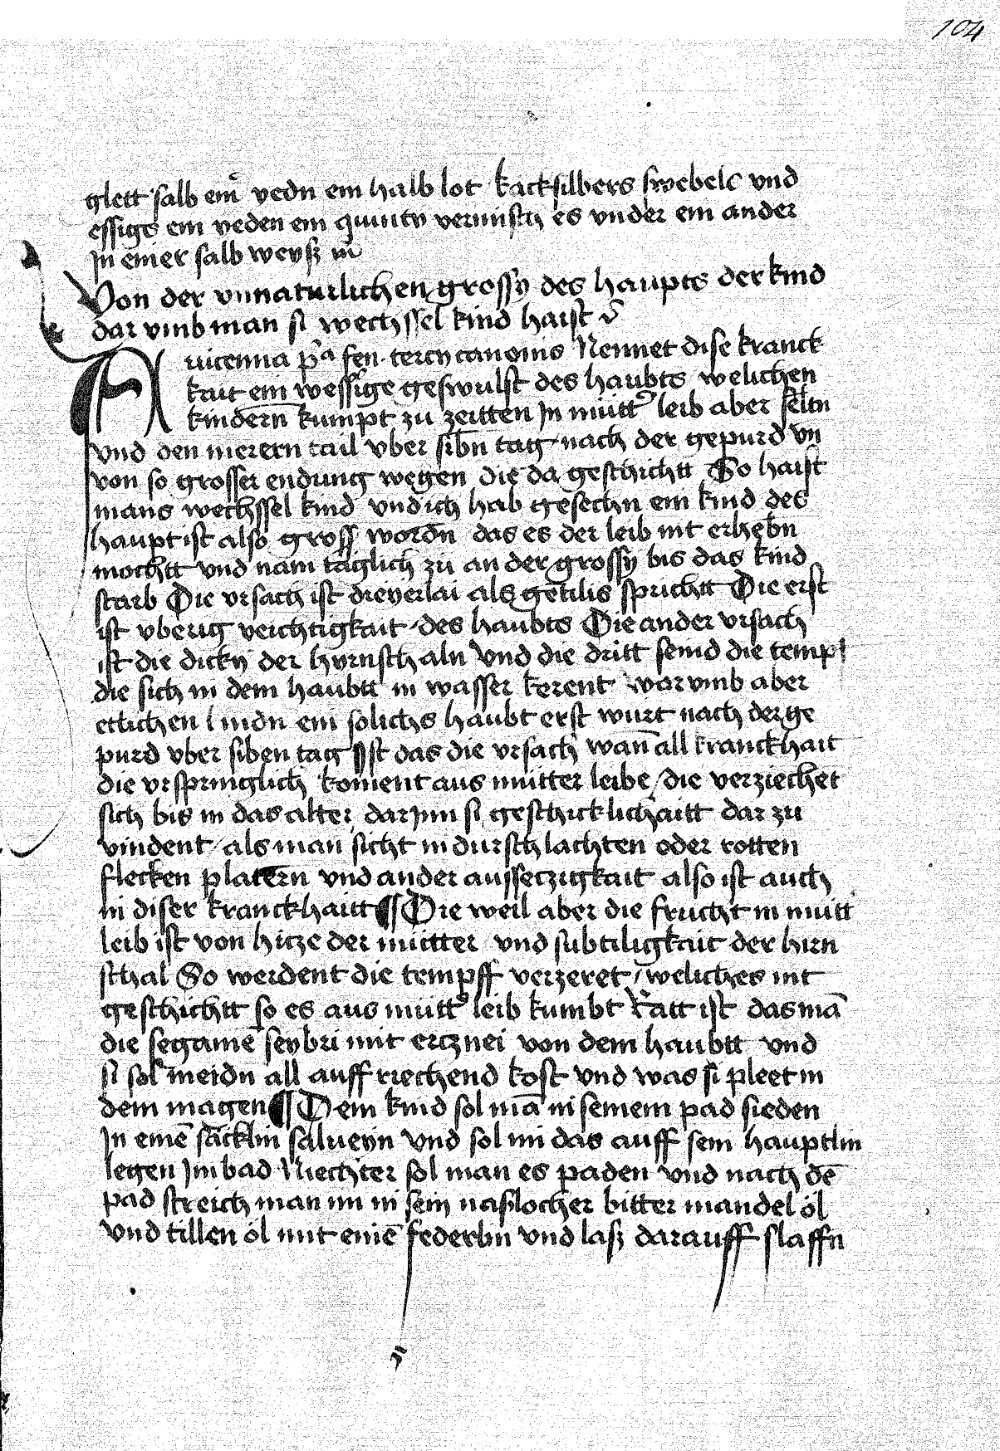 104
glett salb einr yedn ein halb lot kacksilbers swebels vnd
essigs ein yeden ein quintv vermisch es vnder ein ander
Jn einer salb weysz
Von der vnnaturlichen grossy des haupts der kind
dar vmb man si wechssel kind haist
Auicenna pͣ fen tercy canonis Nennet dise kranck
kait ein wessige geswulst des haubts welichen
kindern̄ kumpt zu zeitten Jn mutt̓ leib aber seltn
vnd den merern tail vber sibn̄ tag nach der gepurd vn
von so grosser endung wegen die da geschichtt So haist
mans wechssel kind vnd ich hab gesechn ein kind des
haupt ist also gross wordn̄ das es der leib nit erhebn
mochtt vnd nam täglich zu an der grossy bis das kind
starb Die vrsach ist dreyerlai als gentilis sprichtt Die erst
ist vberig veichtigkait des haubts Die ander vrsach
ist die dicky der hyrnschaln Vnd die dritt seind die tempf
die sich in dem haubtt in wasser kerent warvmb aber
etlichen kindn ein solichs haubt erst wurt nach der ge
purd vber siben tag Jst das die vrsach wan̄ all kranckhait
die vrspringlich koment aus mutter leibe / die verziechet
sich bis in das alter dar Jnn si geschicklichaitt dar zu
vindent / als man sicht in durschlachten oder rotten
flecken platern̄ vnd ander aussetzigkait also ist auch
in diser kranckhaitt ¶ Die weil aber die frucht in mutt
leib ist von hicze der mutter vnd subtiligkait der hirn
schal So werdent die tempff verzeret / weliches nit
geschichtt so es aus mutt̓ leib kumbt Ratt ist das mā
die segamē seybri mit ercznei von dem haubtt vnd
si sol meidn all auff riechend kost vnd was si pleet in
dem magen ¶ Dem kind sol mā in seinem pad sieden
Jn einē säcklin salueyn vnd sol im das auff sein hauptlin
legen Jm bad Niechter sol man es paden vnd nach dē
pad streich man im in sein naslocher bitter mandel öl
vnd tillen öl mit einē federlin vnd lasz darauff slaffn